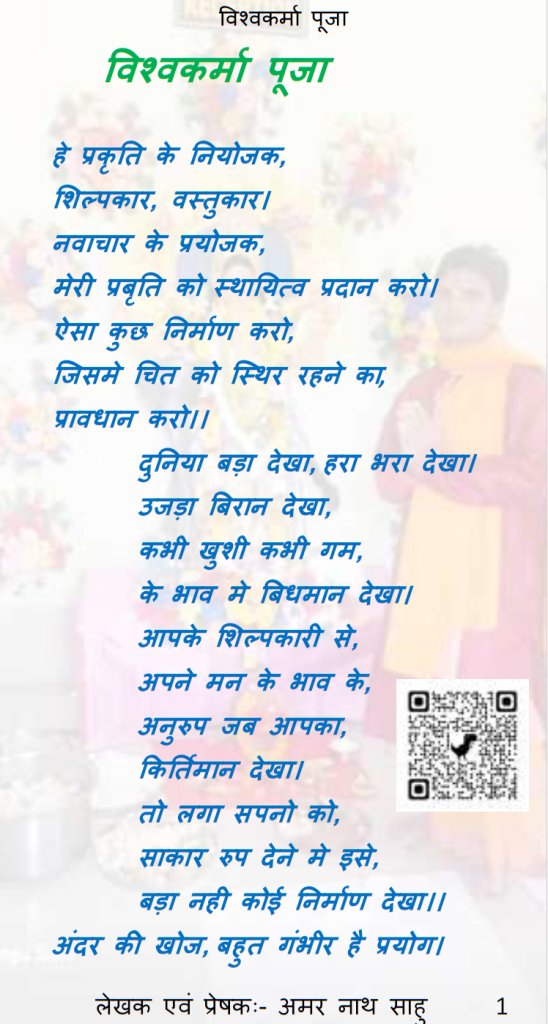 विश्वकर्मा पूजा
विश्वकर्मा पूजा
हे प्रकृति के नियोजक,
शिल्पकार, वस्तुकार।
नवाचार के प्रयोजक,
मेरी प्रबृति को स्थायित्व प्रदान करो।
ऐसा कुछ निर्माण करो,
जिसमे चित को स्थिर रहने का,
प्रावधान करो।।
दुनिया बड़ा देखा, हरा भरा देखा।
उजड़ा बिरान देखा,
कभी खुशी कभी गम,
के भाव मे बिधमान देखा।
आपके शिल्पकारी से,
अपने मन के भाव के,
अनुरुप जब आपका,
किर्तिमान देखा।
तो लगा सपनो को,
साकार रुप देने मे इसे,
बड़ा नही कोई निर्माण देखा।।
अंदर की खोज, बहुत गंभीर है प्रयोग।
लेखक एवं प्रेषकः- अमर नाथ साहु 1